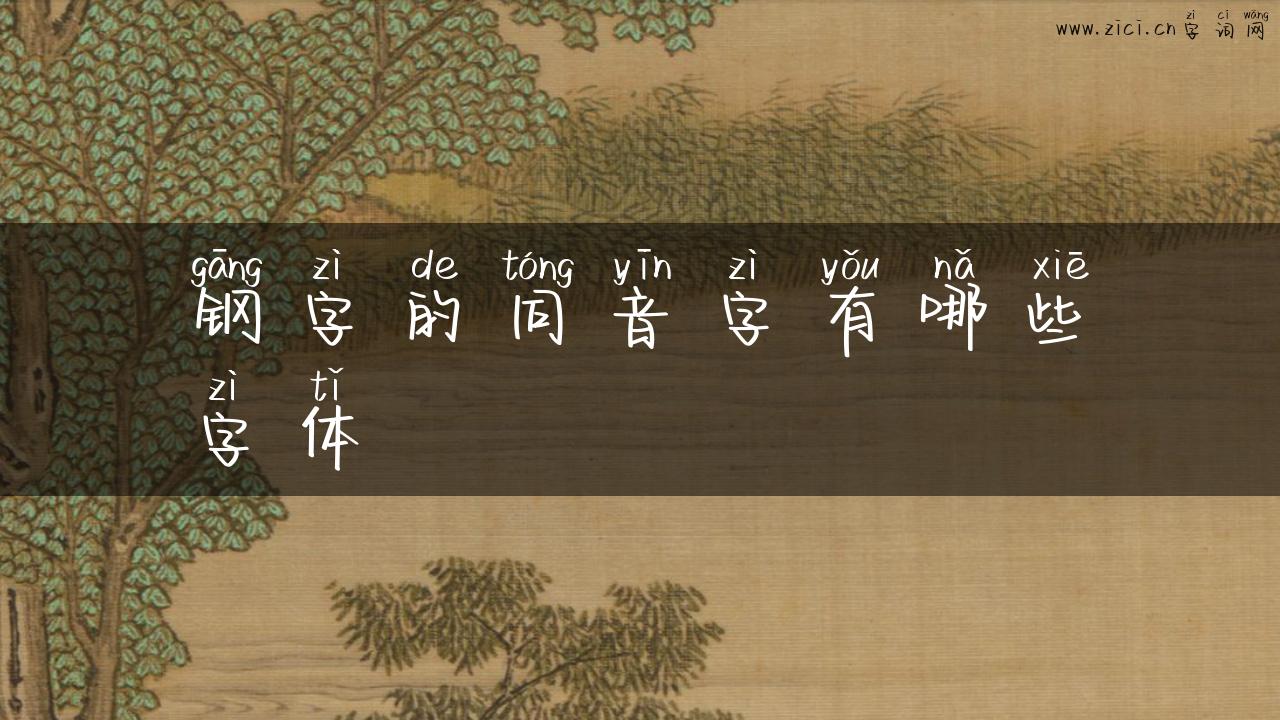 zì cí wǎng
www.zici.cn字词网
gāng zì de tóng yīn zì yǒu nǎ xiē
钢字的同音字有哪些
zì tǐ
字体